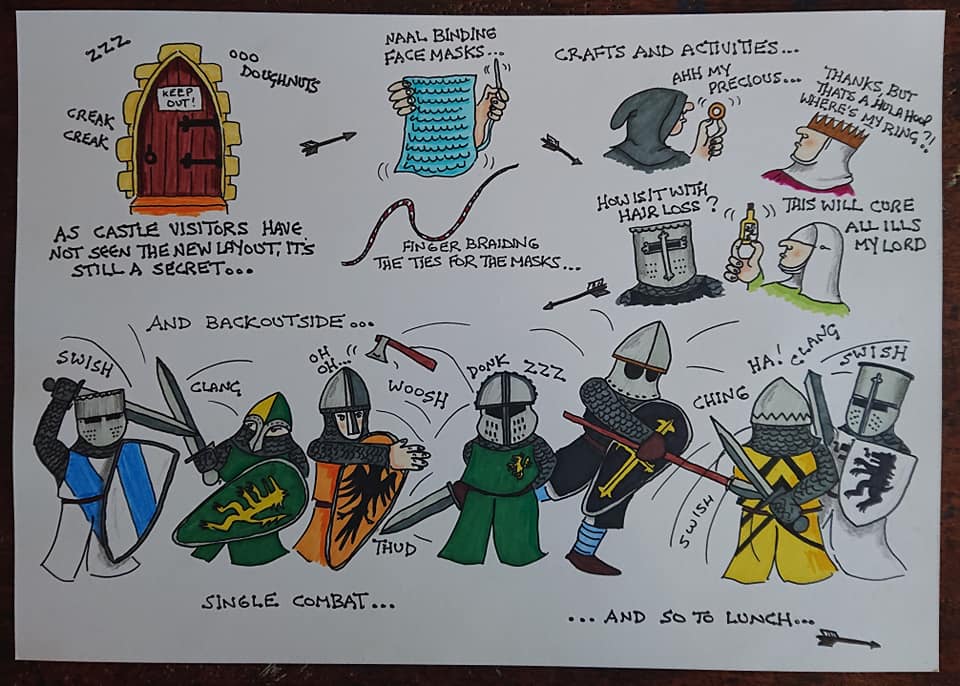 ZZZ
KEEP
OUT!
OOO
DOUGHNUTS
CREAK
CREAK
AS CASTLE VISITORS HAVE
NOT SEEN THE NEW LAYOUT, IT'S
STILL A SECRET...
NAAL BINDING
FACE MASKS...
FINGER BRAIDING
THE TIES FOR THE MASKS...
CRAFTS AND ACTIVITIES...
AHH MY
PRECIOUS...
THANKS, BUT
THATS A HULA HOOP
WHERE'S MY RING?!..
HOW IS IT WITH
HAIR LOSS?
THIS WILL CURE
ALL ILLS
MY LORD
AND BACK OUTSIDE...
SWISH
CLANG
OH
OH...
WOOSH
THUD
DONK ZZZ
CHING
HA!
CLANG
SWISH
SWISH
SINGLE COMBAT...
... AND SO TO LUNCH...